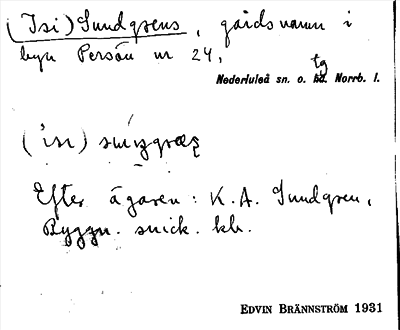 (Isi) Sundgrens, gårdsnamn i
byn Persön nr 24,
tg
Nederluleå sn. o. hd. Norrb. l.
Efter ägaren: K. A. Sundgren,
Byggn. snick. kh.
EDVIN BRÄNNSTRÖM 1931